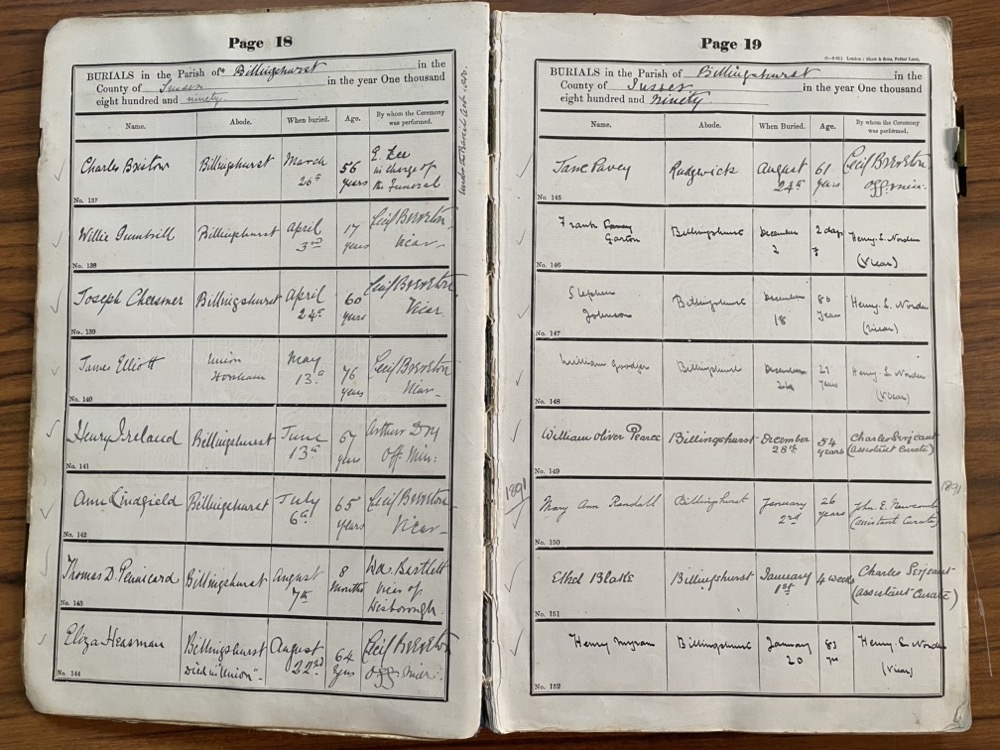 Page 18
BURIALS in the Parish of Billingshurst in the
County of Sussex in the year One thousand
eight hundred and ninety.
under the Burial Act
Name. Abode. When buried. Age. By whom the Ceremony
was performed.
Charles Bristow Billingshurst March 56 E. Lee
26th years in charge of
the Funeral
No. 137
Willie Gumbrill Billingshurst April 17 Cecil Brereton
3rd years Vicar
No. 138
Joseph Cheesmer Billingshurst April 60 Cecil Brereton
24th years Vicar
No. 139
James Elliott Union May 76 Cecil Brereton
Horsham 13th years Vicar
No. 140
Henry Ireland Billingshurst June 67 Arthur
13th years Off. Min:
No. 141
Ann Lindfield Billingshurst July 65 Cecil Brereton
6th years Vicar
No. 142
Thomas D. Penicard Billingshurst August 8 Wd. Bartlett
7th Months Vicar of
Wisborough
No. 143
Eliza Heasman Billingshurst August 64 Cecil Brereton
Died in "Union". 22nd yrs Off. Min.
No. 144
Page 19
London: Shaw & Sons, Fetter Lane.
BURIALS in the Parish of Billingshurst in the
County of Sussex in the year One thousand
eight hundred and ninety.
Name. Abode. When Buried. Age. By whom the Ceremony
was performed.
Jane Pavey Rudgwick August 61 Cecil Brereton
24th years Off. min.
No. 145
Frank Garton Billingshurst December 2 days Henry. L. Norden
2 (Vicar)
No. 146
Stephen Billingshurst December 80 Henry. L. Norden
Johnson 18 Years (Vicar)
No. 147
William Billingshurst December 21 Henry. L. Norden
years (Vicar)
No. 148
William Oliver Pearce Billingshurst December 54 Charles Serjeant
28th years (Assistant Curate)
No. 149
1891 1891
Mary Ann Randall Billinghurst January 26 John. E. Newcomb
2nd years (assistant Curate)
No. 150
Ethel Blake Billingshurst January 4 weeks Charles Serjeant
1st (assistant Curate)
No. 151
Henry Myram Billingshurst January 83 Henry L. Norden
20 yrs (Vicar)
No. 152